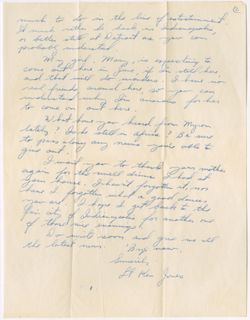 much to do in the line of entertainment.
I'd much rather be back in Indianapolis,
or better still at Detroit as you can
probably understand.
My girl, Mary, is expecting to
come out here in June, if I'm still here
and that will do wonders. I have no
real friends around here so you can
understand why I'm anxious for her
to come on out here.
What have you heard from Myron
lately? Is he still in Africa? Be sure
to pass along any news you're able to
give out.
I want you to thank your mother
again for the swell dinner I had at
your house. I haven't forgotten it, nor
have I forgotten what a good dancer
you are. I hope I get back to the
fair city of Indianapolis for another one
of those nice evenings!
Do write soon and give me all
the latest news. 'Bye now.
Sincerely,
Lt Ken Jones